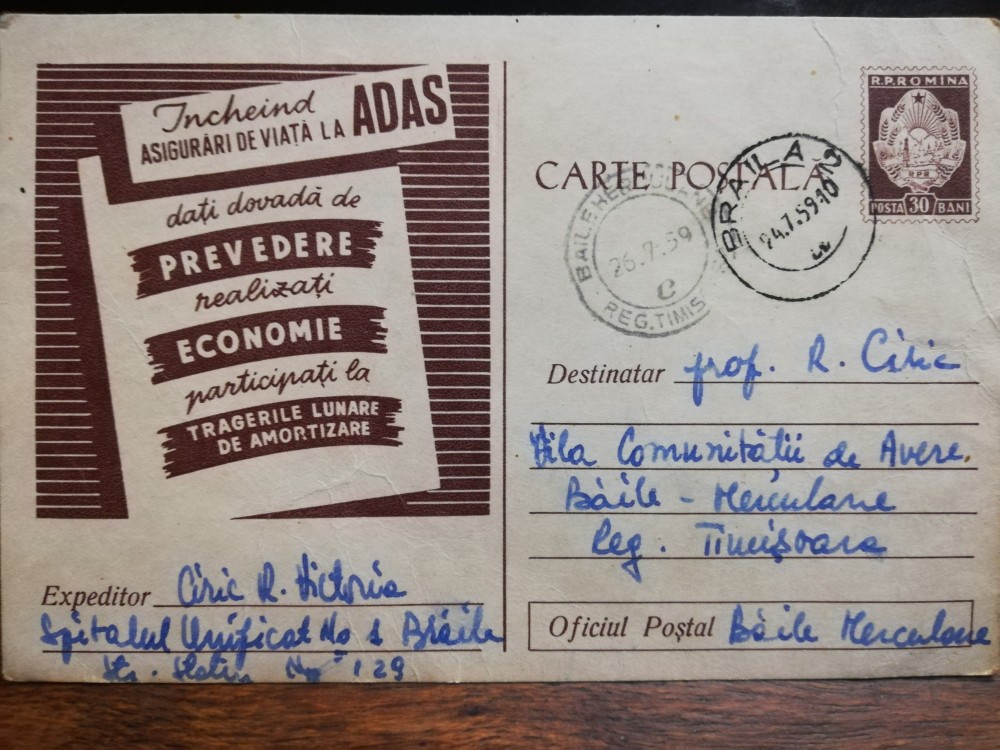 Incheind
ASIGURĂRI DE VIAȚĂ LA ADAS
dați dovadă de
PREVEDERE
realizați
ECONOMIE
participați la
TRAGERILE LUNARE
DE AMORTIZARE
Expeditor Ciric R. Victoria
Spitalul Unificat No 1 Brăila
Str. No 129
R.P.ROMÎNA
R P R
POSTA 30 BANI
CARTE POȘTALĂ
BRAILA
24.7.59
BAILE HERCULANE
26.7.59
C
REG. TIMIS
Destinatar prof. R. Ciric
Vila Comunității de Avere.
Băile - Herculane
Reg. Timișoara
Oficiul Poștal Băile Herculane